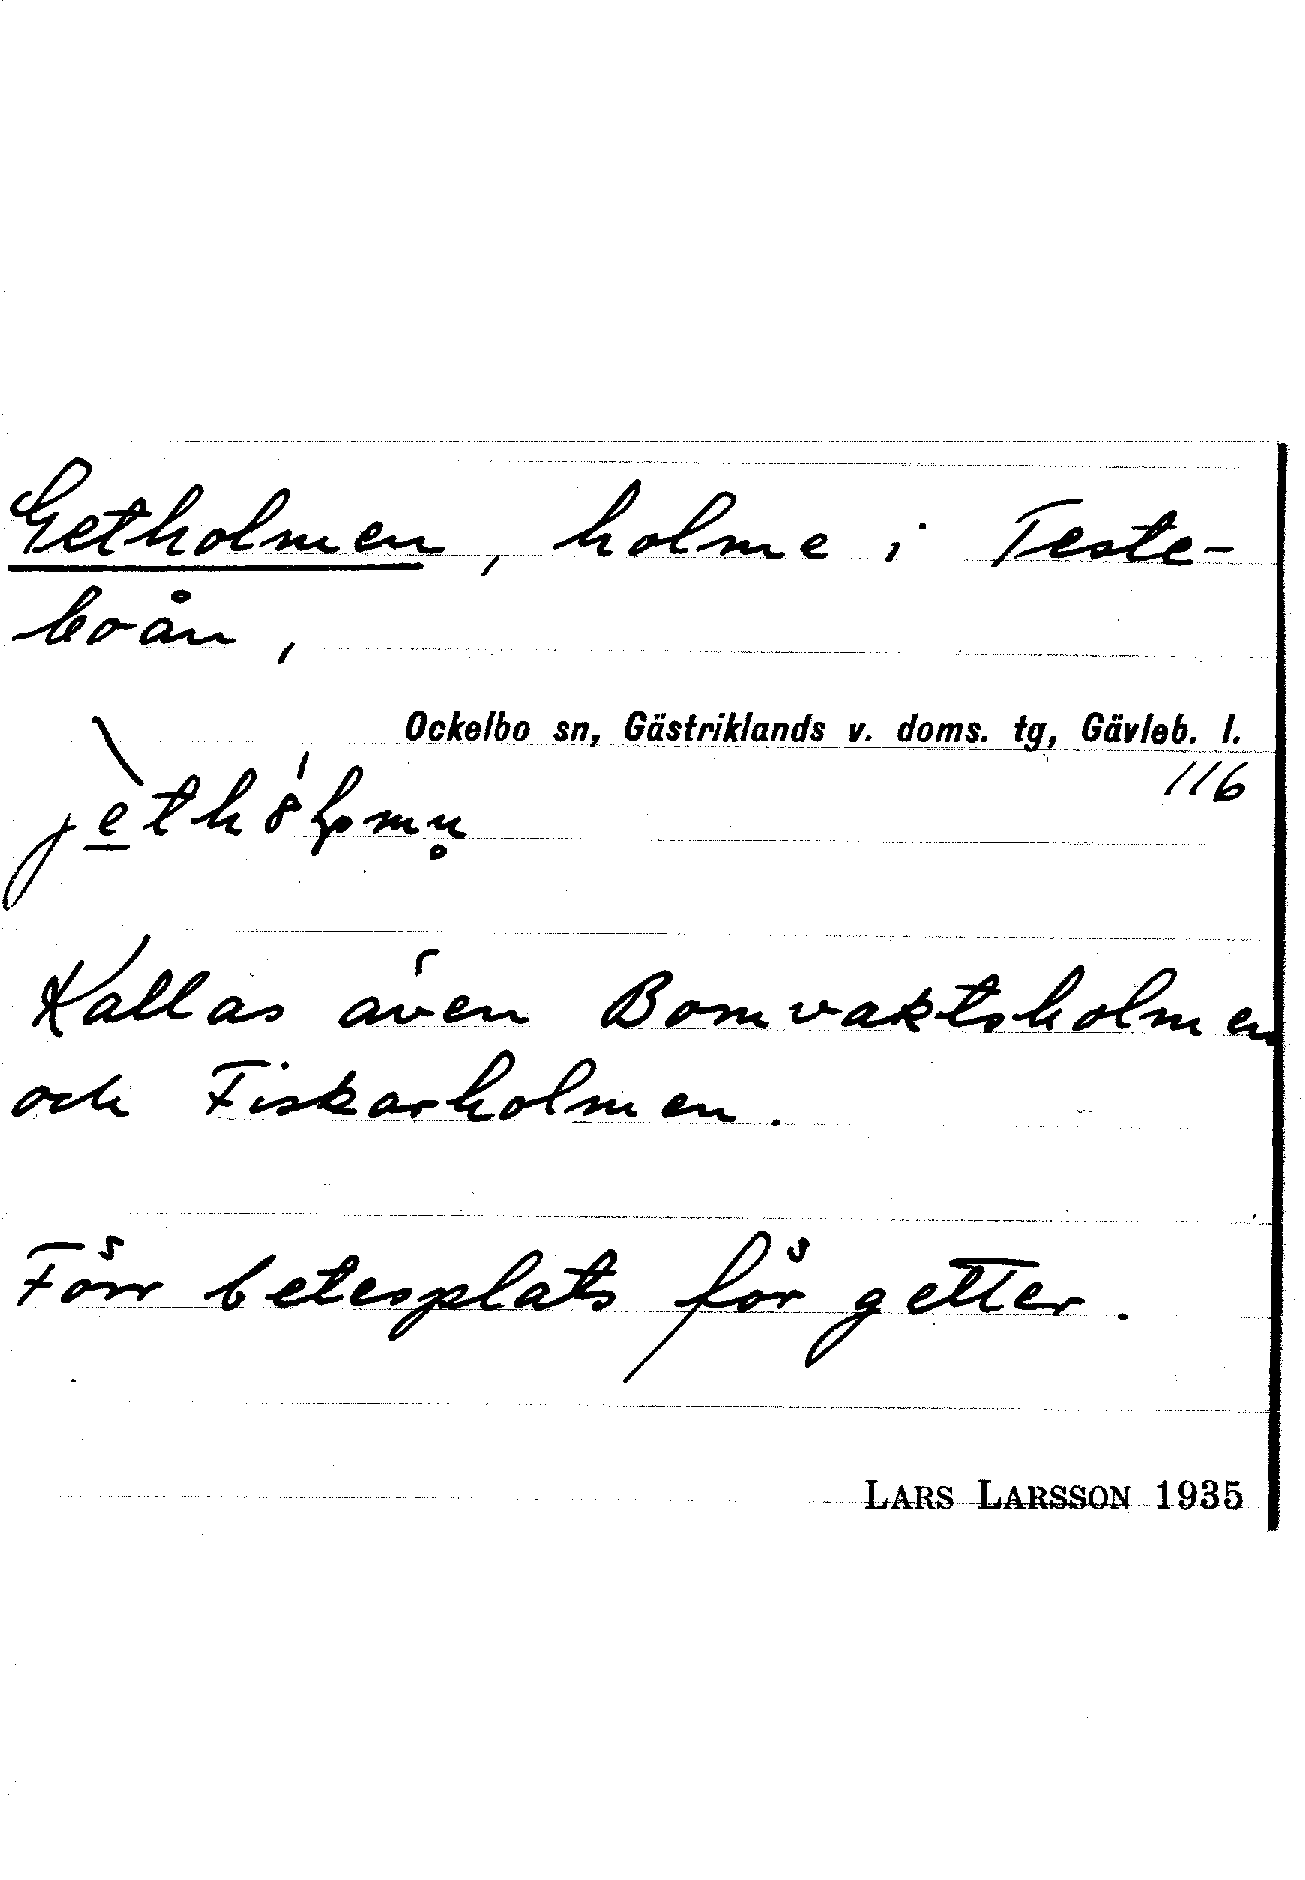 Getholmen, holme i Teste-
boån,
Ockelbo sn, Gästriklands v. doms. tg, Gävleb. l.
116
Kallas även Bomvaktsholmen
och Fiskarholmen.
Förr betesplats för getter.
LARS LARSSON 1935